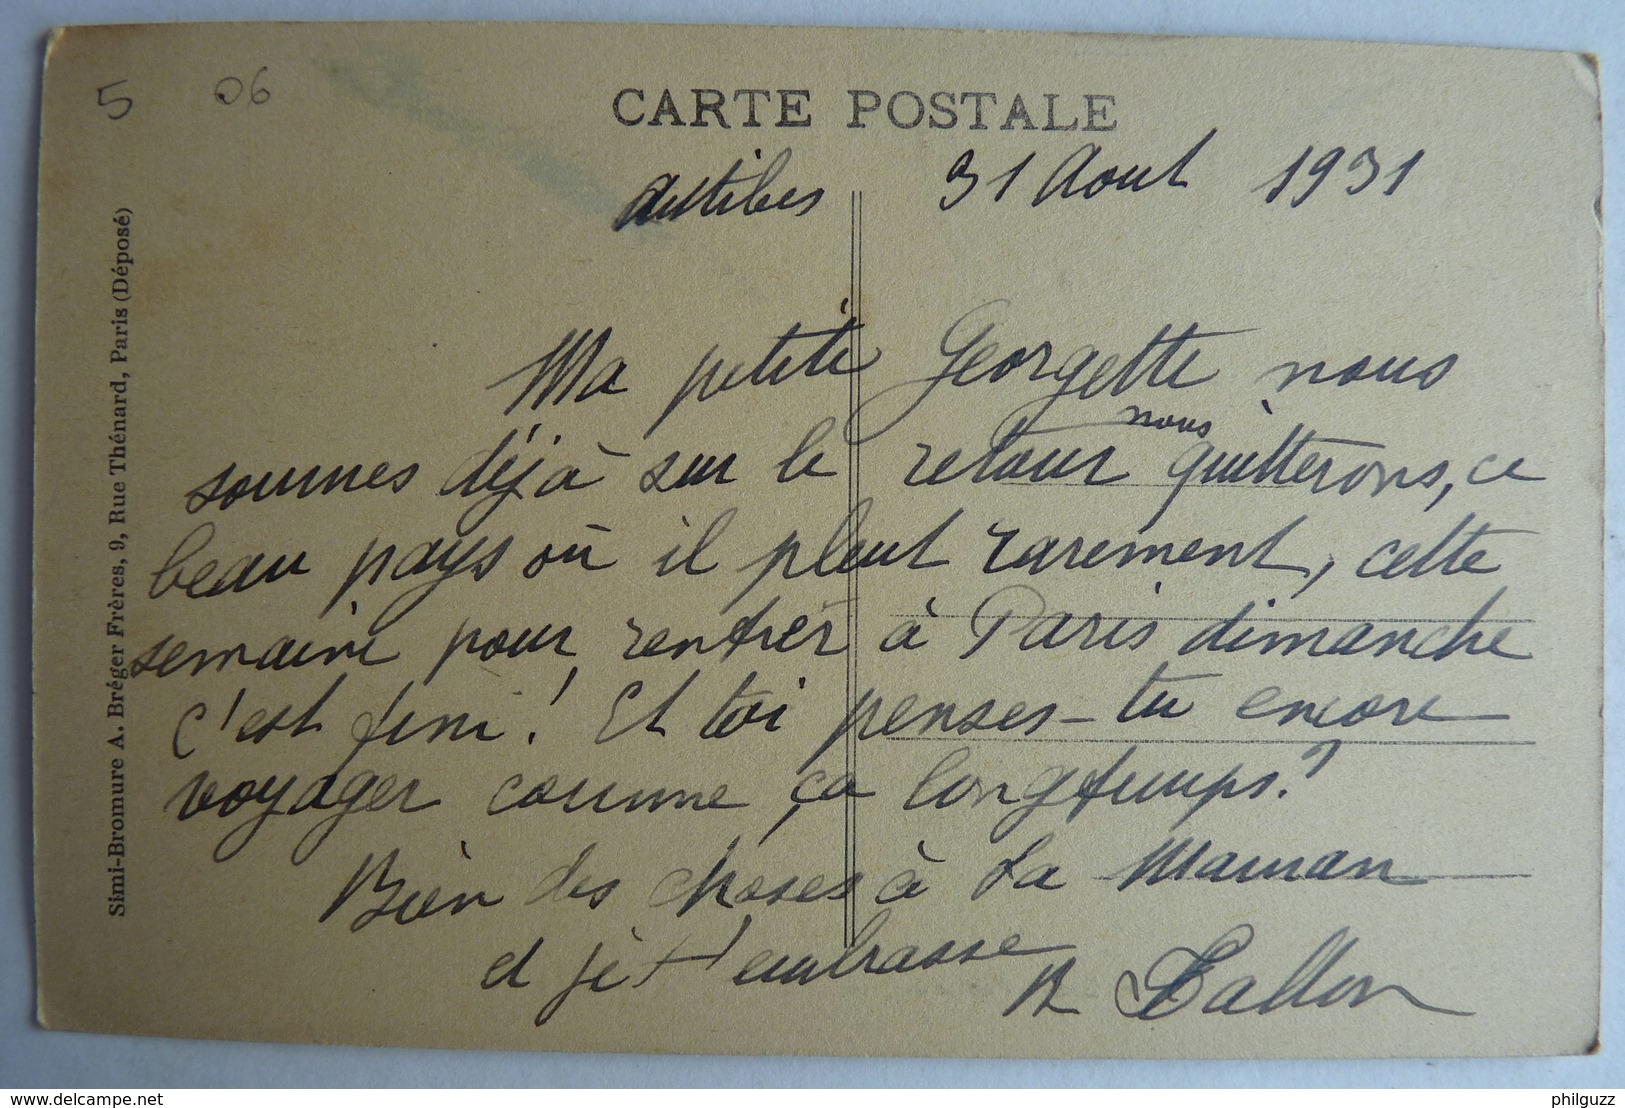 5 06
CARTE POSTALE
Antibes 31 Aout 1931
Ma petite Georgette nous
sommes déjà sur le retour nous quitterons, ce
beau pays où il pleut rarement, cette
semaine pour rentrer à Paris dimanche
c'est fini! Et toi penses-tu encore
voyager comme ça longtemps?
Bien des choses à ta Maman
et je t'embrasse
R
Simi-Bromure A. Bréger Frères, 9, Rue Thénard, Paris (Déposé)
www.delcampe.net
philguzz